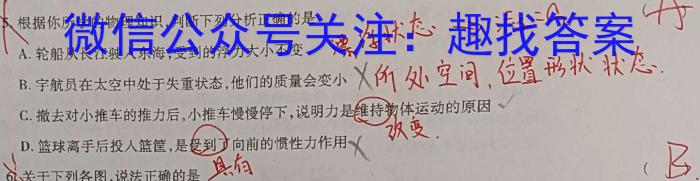 5. 根据你所学的物理知识,判断下列分析正确的是
微信公众号关注：趣找答案
漂浮状态
A. 轮船从长江驶入东海,受到的浮力大小不变
B. 宇航员在太空中处于失重状态,他们的质量会变小
所处空间,位置形状 状态.
C. 撤去对小推车的推力后,小推车慢慢停下,说明力是维持物体运动的原因
改变.
D. 篮球离手后投入篮筐,是受到了向前的惯性力作用
具有
6. 关于下列各图,说法正确的是
( B